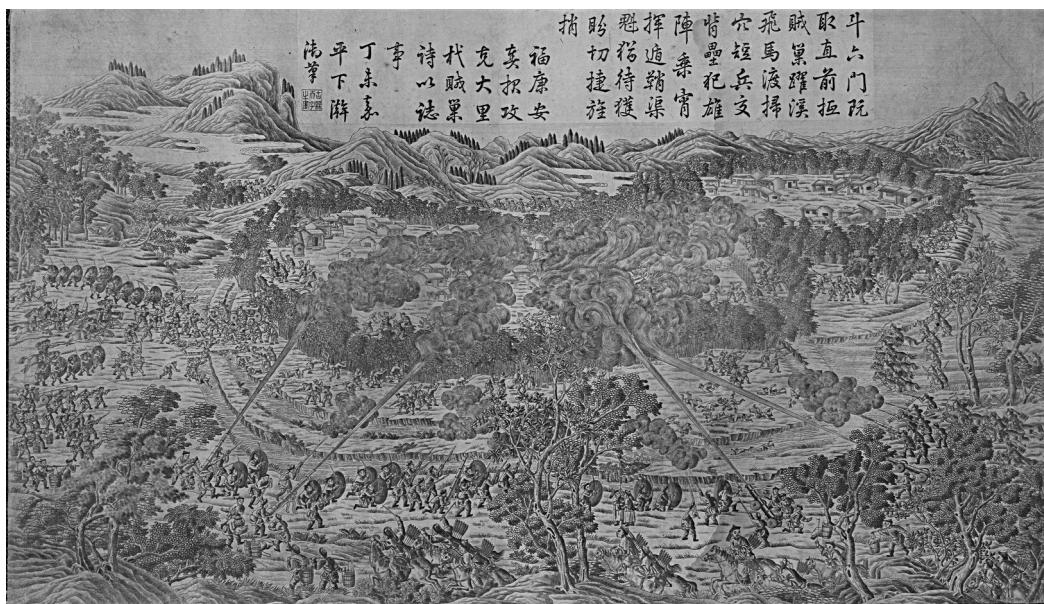 斗六門阨
取直前抵
賊巢躍溪
飛馬渡掃
穴短兵交
背壘犯雄
陣乘宵
揮遁鞘渠
魁猶待獲
盼切捷旌
捎
福康安
奏報攻
克大里
杙賊巢
詩以誌
事
丁未嘉
平下澣
御筆